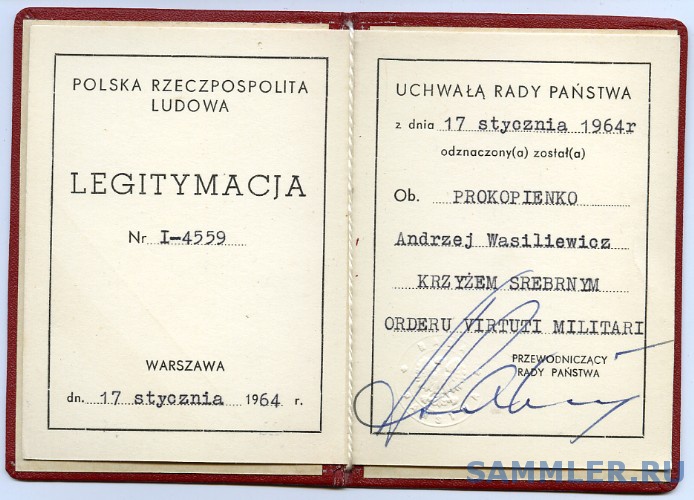 POLSKA RZECZPOSPOLITA
LUDOWA
LEGITYMACJA
Nr I-4559
WARSZAWA
dn. 17 stycznia 1964 r.
UCHWAŁĄ RADY PAŃSTWA
z dnia 17 stycznia 1964r
odznaczony(a) został(a)
Ob. PROKOPIENKO
Andrzej Wasiliewicz
KRZYŻEM SREBRNYM
ORDERU VIRTUTI MILITARI
PRZEWODNICZĄCY
RADY PAŃSTWA
SAMMLER.RU